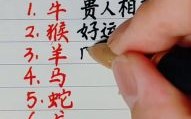 1. 牛 贵人相
2. 猴 好运
3. 羊
4. 马
5. 蛇